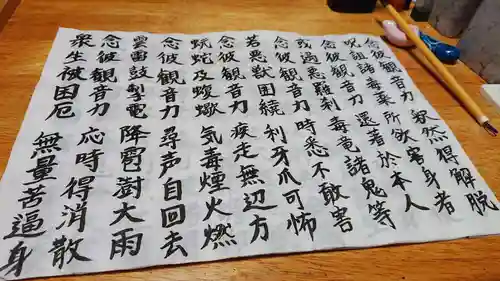 念彼観音力 釈然得解脱
呪詛諸毒薬 所欲害身者
念彼観音力 還着於本人
或遇悪羅刹 毒竜諸鬼等
念彼観音力 時悉不敢害
若悪獣囲繞 利牙爪可怖
念彼観音力 疾走無辺方
蚖蛇及蝮蠍 気毒煙火燃
念彼観音力 尋声自回去
雲雷鼓掣電 降雹澍大雨
念彼観音力 応時得消散
衆生被困厄 無量苦逼身